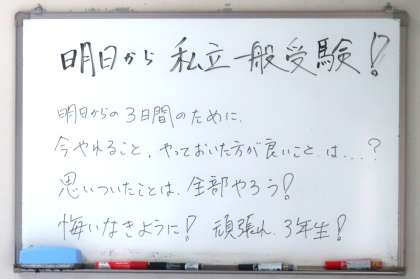 明日から 私立一般受験！
明日からの3日間のために、
今やれること、やっておいた方が良いこと は…？
思いついたことは、全部やろう！
悔いなきように！ 頑張れ、3年生！